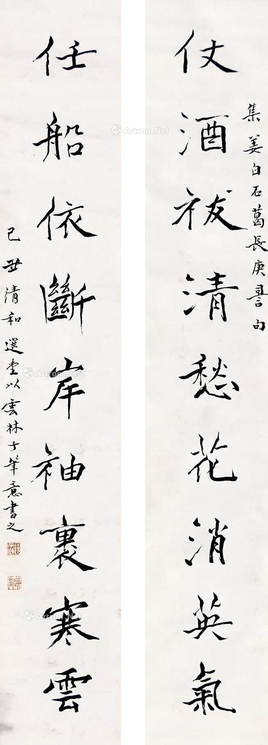 集姜白石葛長庚詞句
仗酒祓清愁花消英氣
任船依斷岸袖裏寒雲
己丑清和選堂以雲林子筆意書之